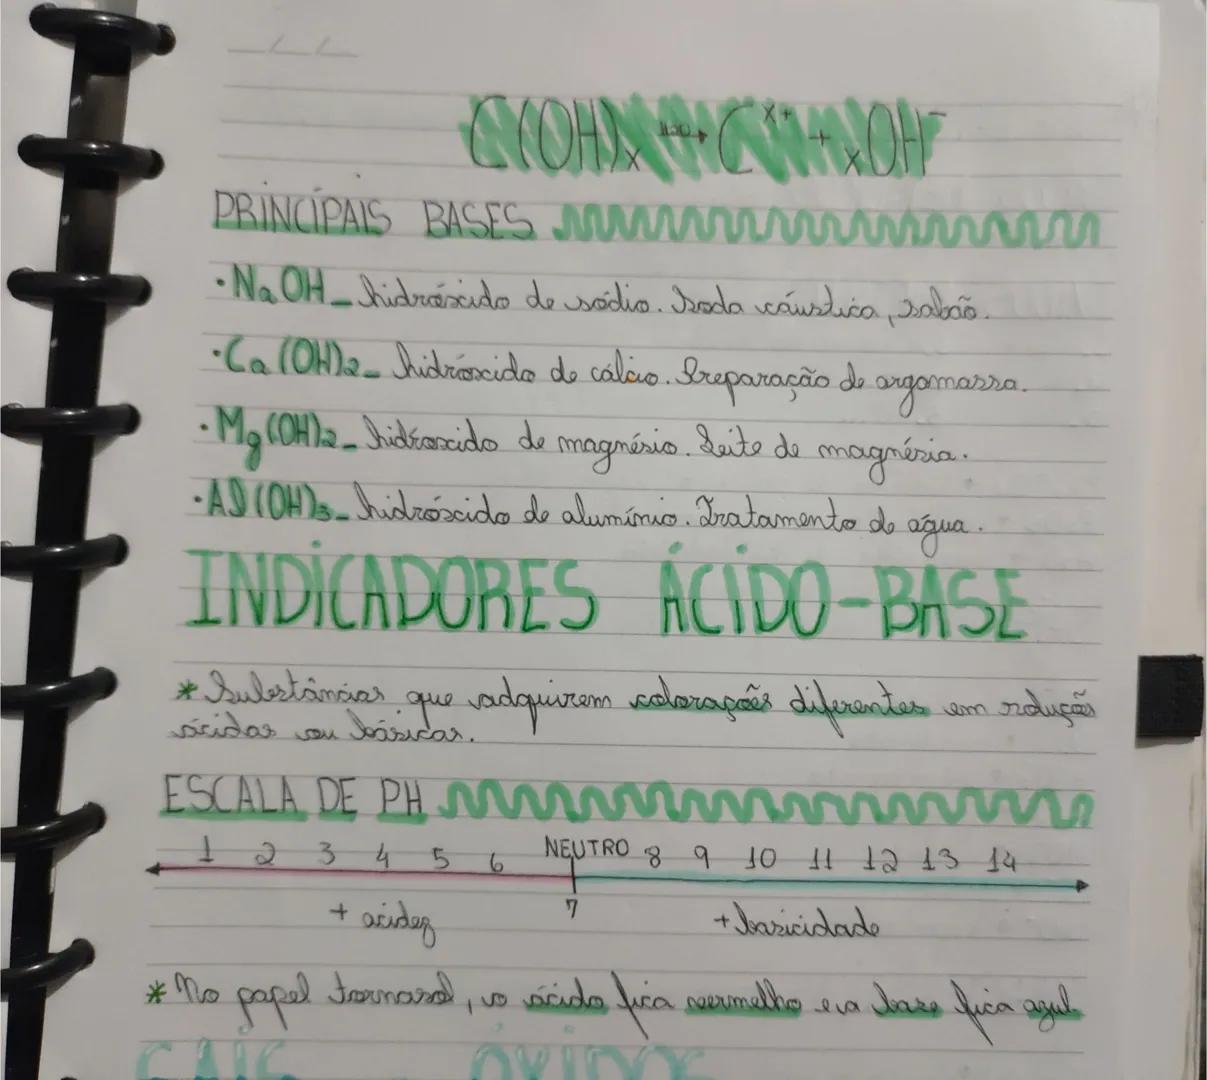 C(OH)x H2O→ Cx+ + xOH-
PRINCIPAIS BASES
·NaOH_ hidróxido de sódio. Soda cáustica, sabão.
·Ca(OH)2_ hidróxido de cálcio. Preparação de argamassa.
·Mg(OH)2_ hidróxido de magnésio. Leite de magnésia.
·Al(OH)3_ hidróxido de alumínio. Tratamento de água.
INDICADORES ÁCIDO-BASE
* Substâncias que adquirem colorações diferentes em soluções
ácidas ou básicas.
ESCALA DE PH
1 2 3 4 5 6 NEUTRO 8 9 10 11 12 13 14
+ acidez 7 + basicidade
* No papel tornassol, o ácido fica vermelho e a base fica azul.